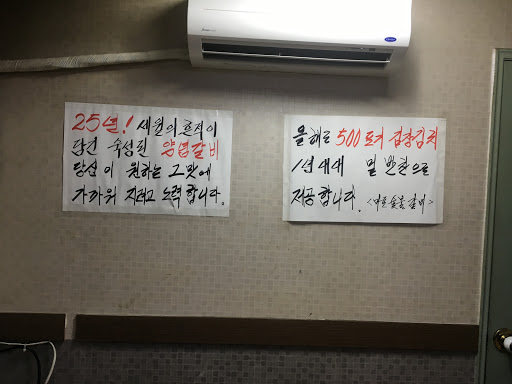 25년! 세월의 흔적이
담긴 숙성된 양념갈비
당신이 원하는 그맛에
가까워 지려고 노력합니다.
올해로 500포기 김장김치
1년 내내 밑반찬으로
제공합니다. <마포숯불갈비>